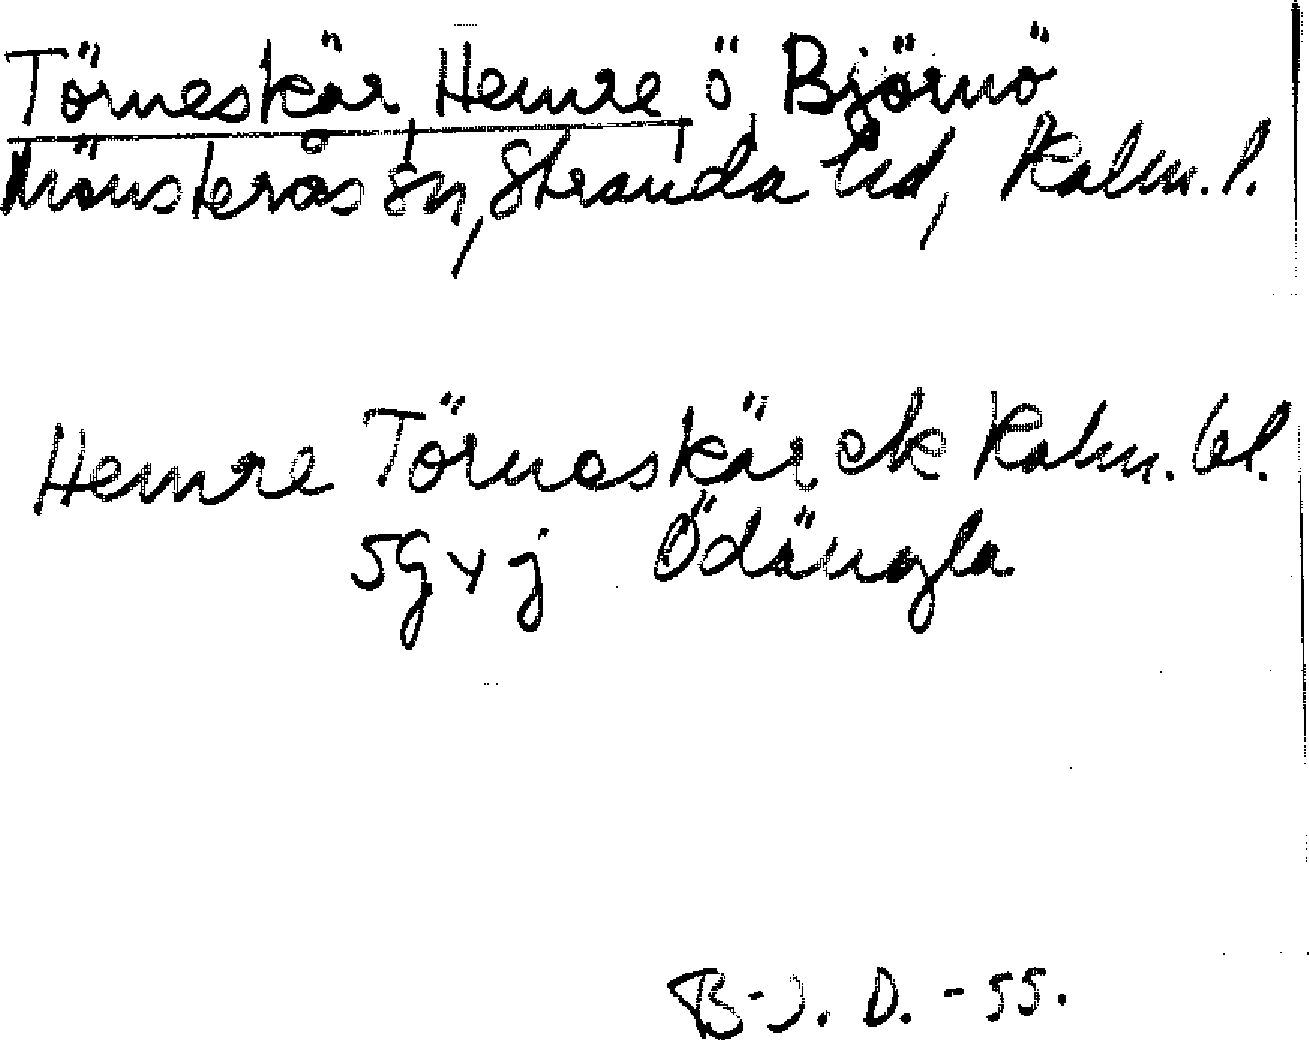 Törneskär, Hemre, ö Björnö
Mönsterås sn, Stranda hd, Kalm. l.
Hemre Törneskär ek Kalm. bl.
5G y j Ödängla
B-J. D. -55.